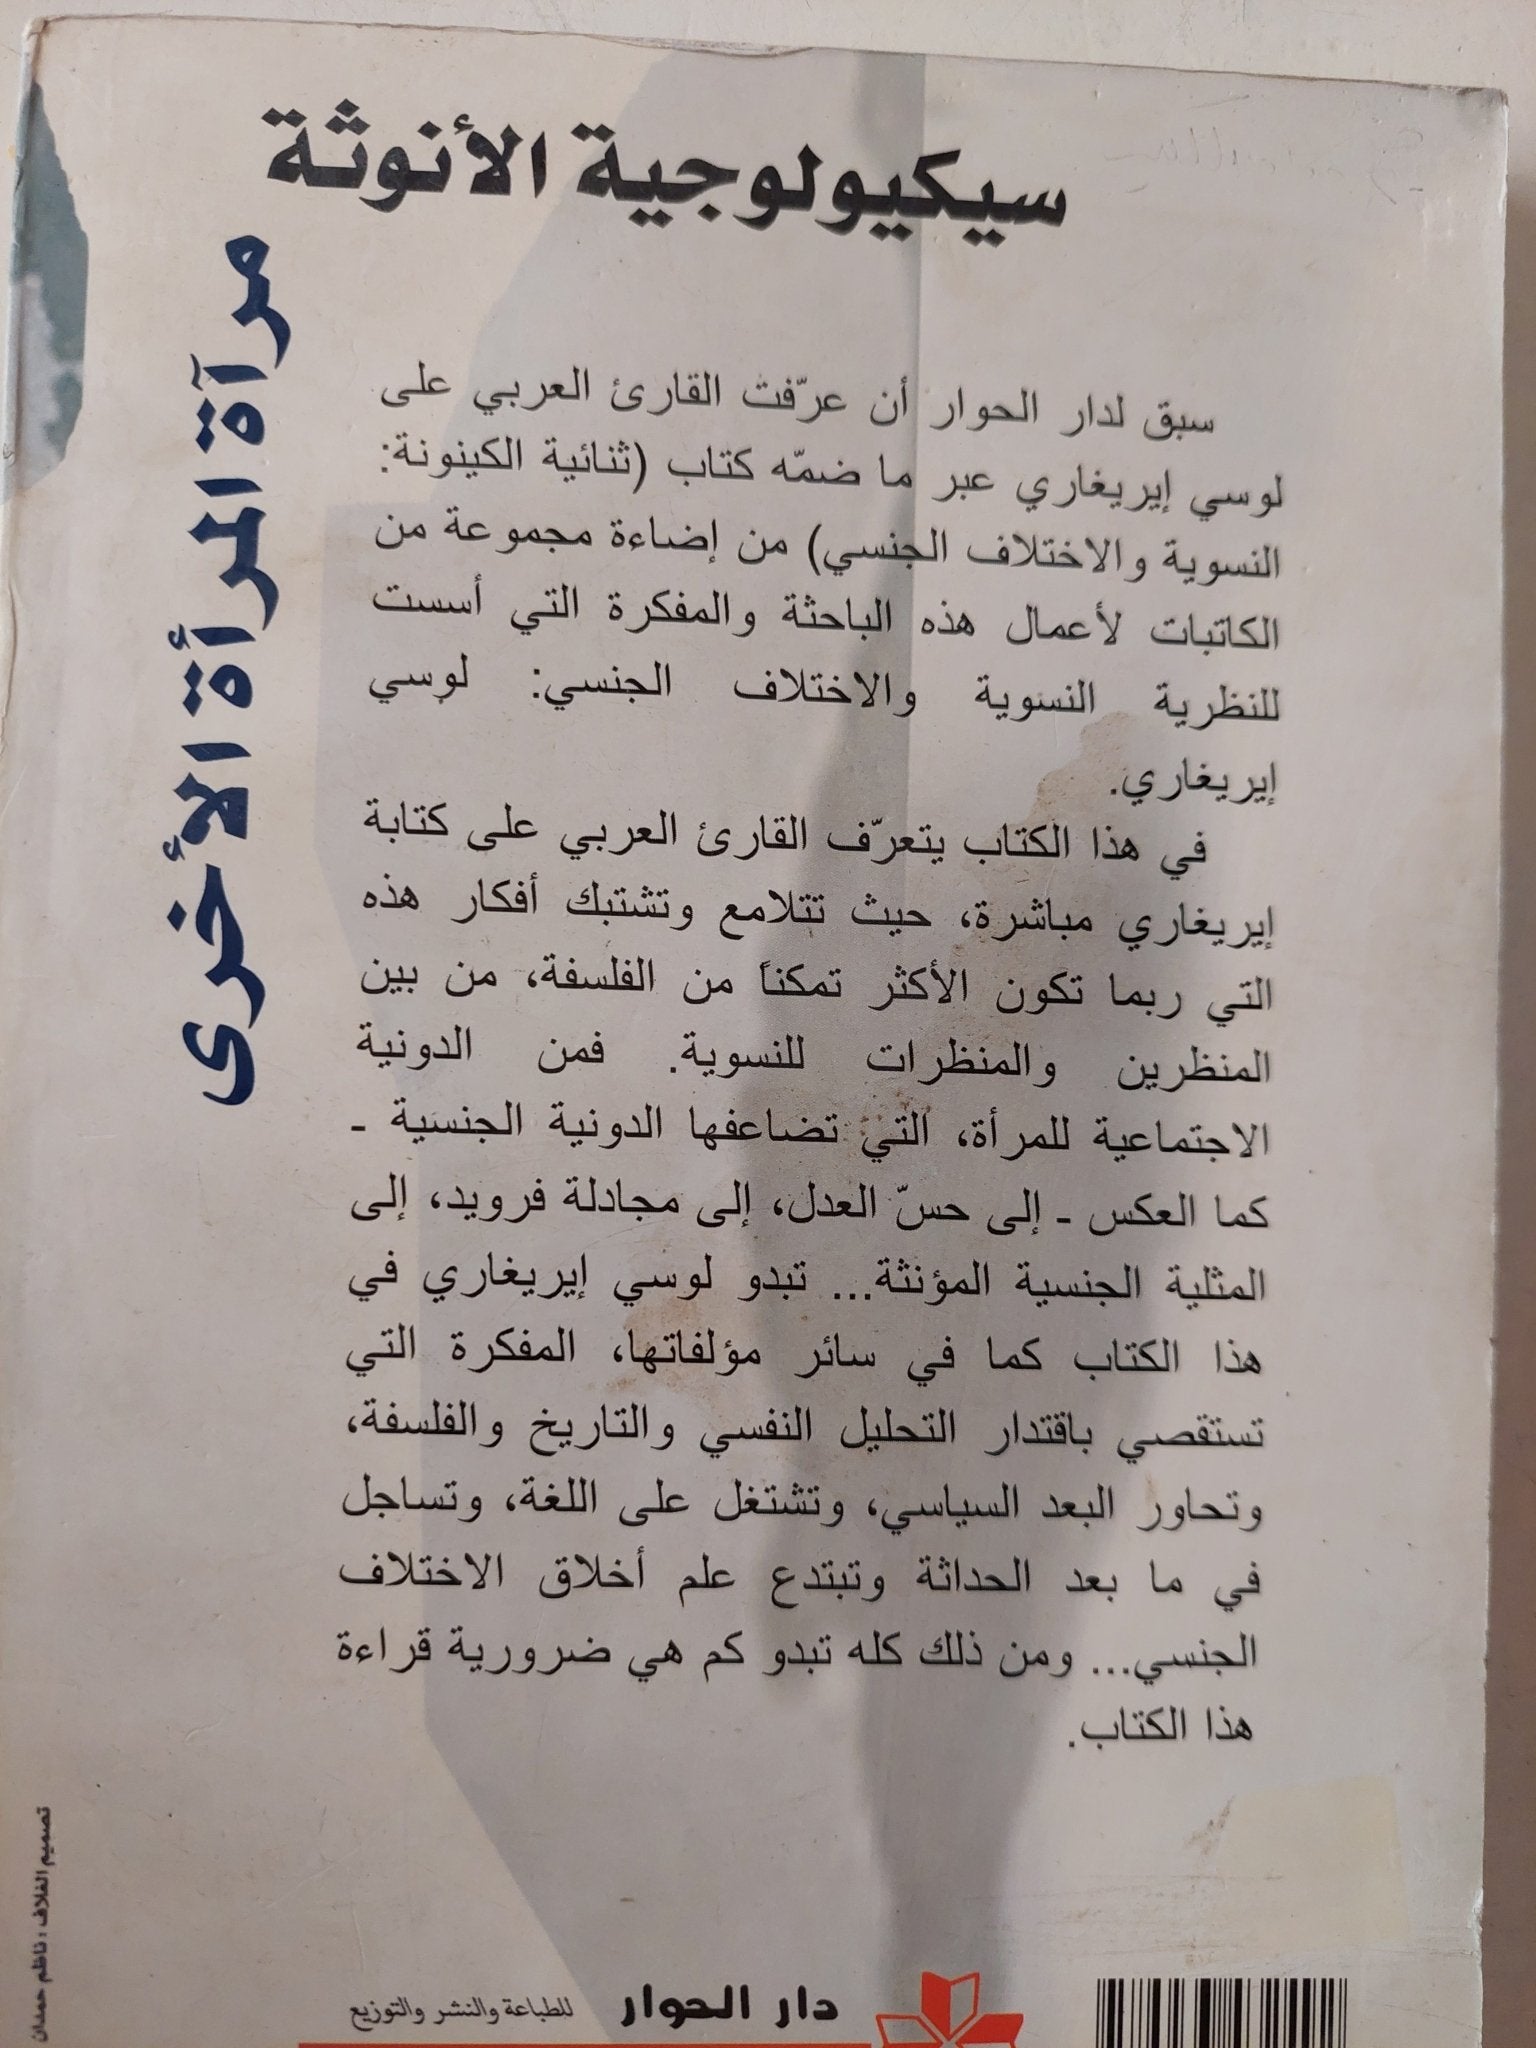 سيكيولوجية الأنوثة
مرآة المرأة الأخرى
سبق لدار الحوار أن عرّفت القارئ العربي على
لوسي إيريغاري عبر ما ضمّه كتاب (ثنائية الكينونة:
النسوية والاختلاف الجنسي) من إضاءة مجموعة من
الكاتبات لأعمال هذه الباحثة والمفكرة التي أسست
للنظرية النسوية والاختلاف الجنسي: لوسي
إيريغاري.
في هذا الكتاب يتعرّف القارئ العربي على كتابة
إيريغاري مباشرة، حيث تتلامع وتشتبك أفكار هذه
التي ربما تكون الأكثر تمكناً من الفلسفة، من بين
المنظرين والمنظرات للنسوية. فمن الدونية
الاجتماعية للمرأة، التي تضاعفها الدونية الجنسية ـ
كما العكس ـ إلى حسّ العدل، إلى مجادلة فرويد، إلى
المثلية الجنسية المؤنثة... تبدو لوسي إيريغاري في
هذا الكتاب كما في سائر مؤلفاتها، المفكرة التي
تستقصي باقتدار التحليل النفسي والتاريخ والفلسفة،
وتحاور البعد السياسي، وتشتغل على اللغة، وتساجل
في ما بعد الحداثة وتبتدع علم أخلاق الاختلاف
الجنسي... ومن ذلك كله تبدو كم هي ضرورية قراءة
هذا الكتاب.
تصميم الغلاف : ناظم حمدان
دار الحوار للطباعة والنشر والتوزيع